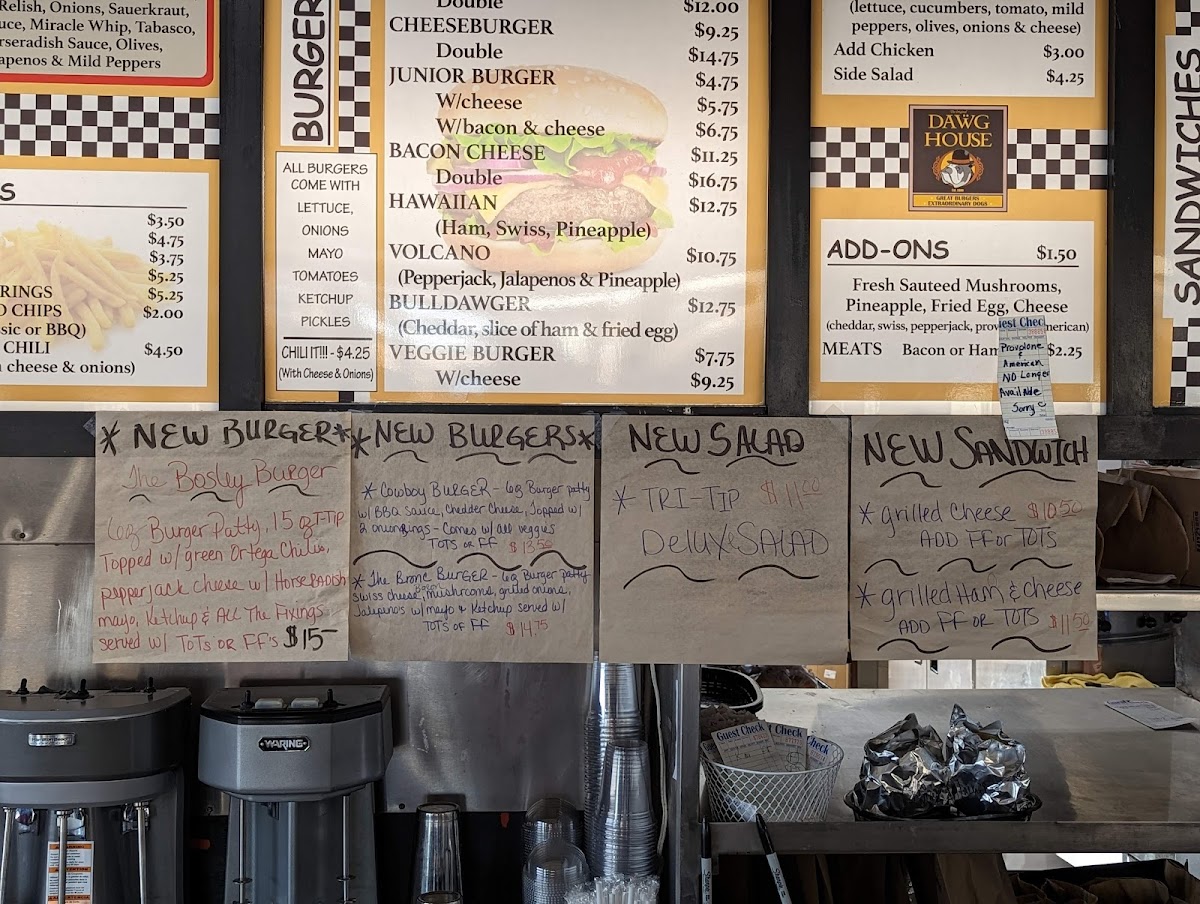 Relish, Onions, Sauerkraut,
uce, Miracle Whip, Tabasco,
rseradish Sauce, Olives,
apenos & Mild Peppers
S
$3.50
$4.75
$3.75
$5.25
RINGS $5.25
O CHIPS $2.00
sic or BBQ)
CHILI $4.50
cheese & onions)
BURGER
ALL BURGERS
COME WITH
LETTUCE,
ONIONS
MAYO
TOMATOES
KETCHUP
PICKLES
CHILI IT!!! - $4.25
(With Cheese & Onions)
Double $12.00
CHEESEBURGER $9.25
Double $14.75
JUNIOR BURGER $4.75
W/cheese $5.75
W/bacon & cheese $6.75
BACON CHEESE $11.25
Double $16.75
HAWAIIAN $12.75
(Ham, Swiss, Pineapple)
VOLCANO $10.75
(Pepperjack, Jalapenos & Pineapple)
BULLDAWGER $12.75
(Cheddar, slice of ham & fried egg)
VEGGIE BURGER $7.75
W/cheese $9.25
(lettuce, cucumbers, tomato, mild
peppers, olives, onions & cheese)
Add Chicken $3.00
Side Salad $4.25
DAWG
HOUSE
GREAT BURGERS
EXTRAORDINARY DOGS
ADD-ONS $1.50
Fresh Sauteed Mushrooms,
Pineapple, Fried Egg, Cheese
(cheddar, swiss, pepperjack, prov merican)
MEATS Bacon or Ham $2.25
uest Chec
Provolone
&
American
NO Longer
Available
Sorry
SANDWICHES
* NEW BURGER *
The Bosley Burger
6oz Burger Patty, 1.5 oz T-Tip
Topped w/ green Ortega Chilis,
pepperjack Cheese w/ HorseRADISH
mayo, Ketchup & All The Fixings
served w/ TOTS OR FF's $15-
* NEW BURGERS *
* Cowboy BURGER - 6oz Burger patty
w/ BBQ sauce, Chedder Cheese, Topped w/
2 onion rings - Comes w/ all veggies
TOTS or FF $13.50
* The Bronc BURGER - 6oz Burger patty
Swiss cheese, bacon, mushrooms, grilled onions,
Jalapenos w/ mayo & Ketchup served w/
TOTS OF FF $14.75
NEW SALAD
* TRI-TIP $11.00
Deluxe SALAD
NEW SANDWICH
* grilled Cheese $10.50
ADD FF or TOTS
* grilled Ham & Cheese
ADD FF OR TOTS $11.50
WARING
Guest Check
Check
Check
Sharpie